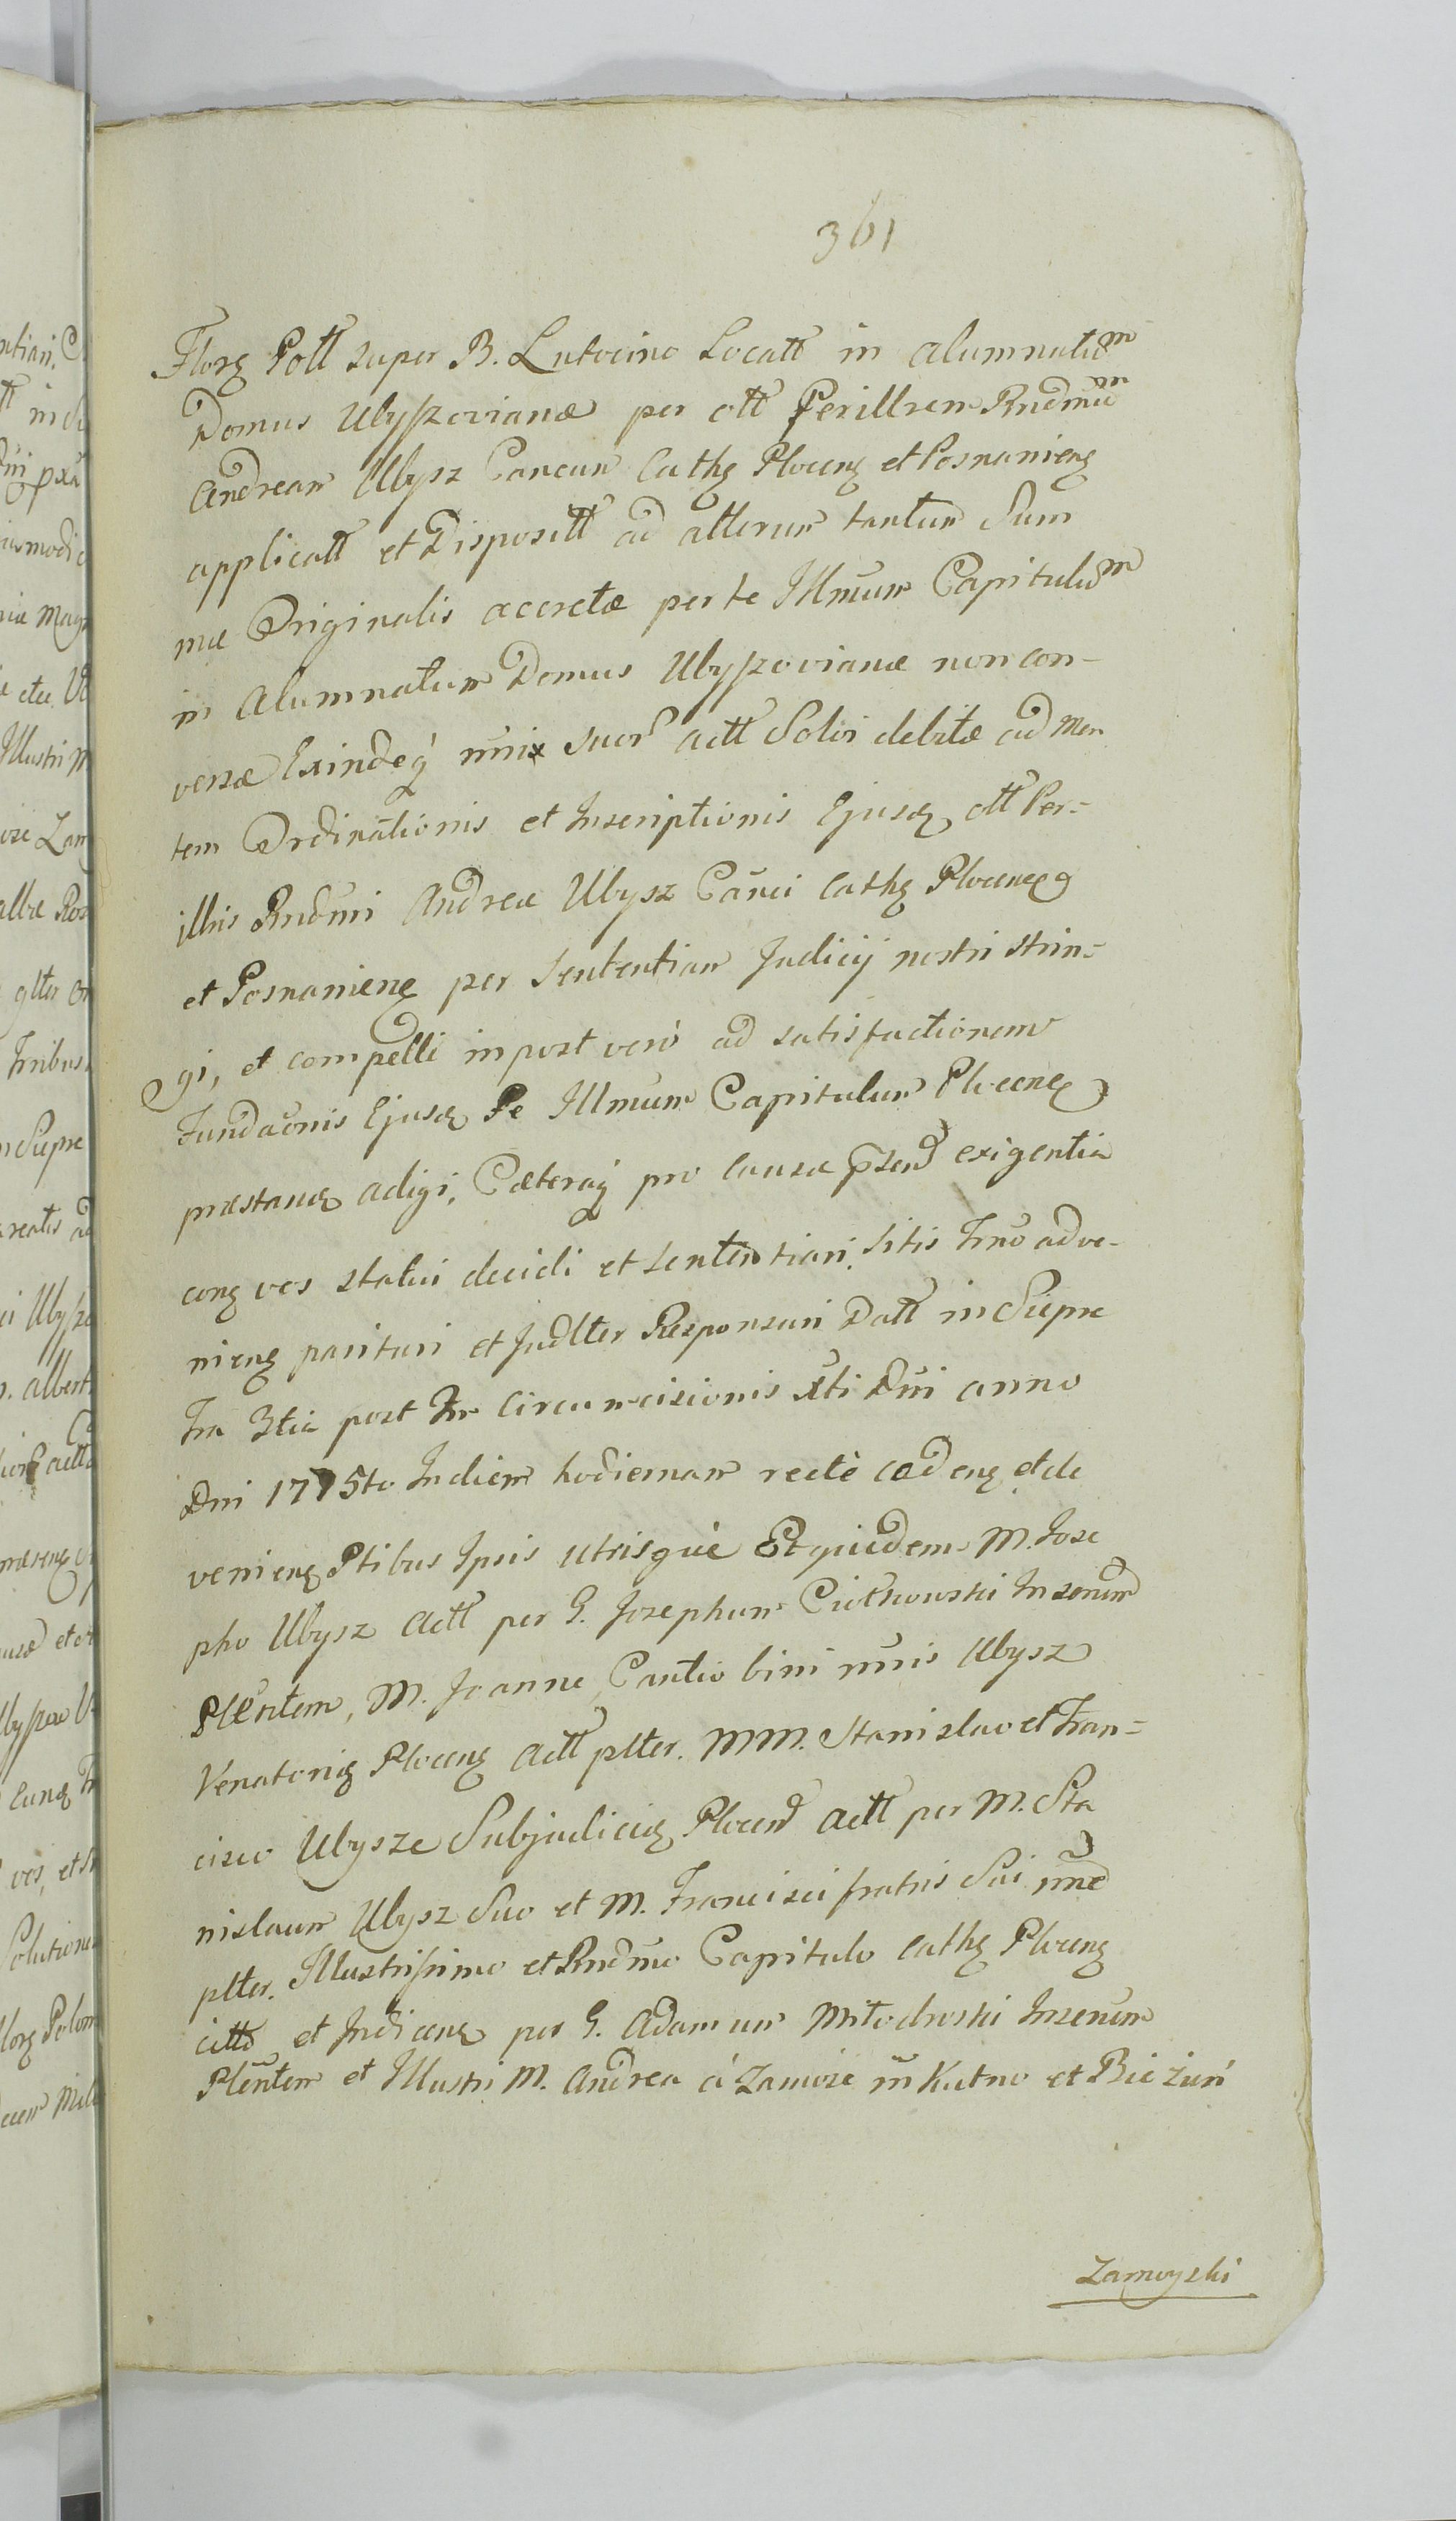 361
Florę Poll super B. Lutocino Locatt in alumnatum
Domus Ubyszovianæ per ott Perillrem Rndmum
Andream Ubysz Cancun Cathę Plocenę et Posnanienę
applicatt et Disposett ad alterum tantum Sum
mæ Originalis accretæ per te Illmum Capitulum
in Alumnatum Domus Ubyszovianæ non con-
versæ Exindeq́ mnix suor actt Solvi debitæ ad Men
tem Ordinationis et Inscriptionis Ejusdę ott Per-
illris Rndmi Andreæ Ubysz Canci Cathę Plocenę
et Posnanienę per Sententiam Judicij nostri strin-
gi, et compelli in post verò ad satisfactionem
Fundaonis Ejusdę Pe Illmum Capitulum Plocenę
præstandę adigi, Cæteraq́ pro causæ p̄send exigentia
cenę vos statui decidi et sententiari. Sitis Trno adve-
nienę parituri et Judlter Responsuri Datt in Sieprc
Fra 3tia post Fm Circumcisionis Xti Dni anno
Dni 1775to In diem hodiernam rectè cadenę et de
venienę Ptibus Ipsis utrisquè Et quidem M. Jose
pho Ubysz Actt per G. Josephum Ciółkowski In senum
Plentem, M. Joanne Cantio bini mnis Ubysz
Venatorię Plocenę Actt plter. MM. Stanislao et Fran-
cisco Ubysze Subjudicię Plocend Actt per M. Sta
nislaum Ubysz Suo et M. Francisci fratris Sui nne
plter. Illustrissimo et Rndmo Capitulo Cathę Plocenę
citto et Indicenę per G. Adamum Młodroski Insenum
Plentem et Illustri M. Andrea à Zamoście in Kutno et Bieżuń
Zamoyski